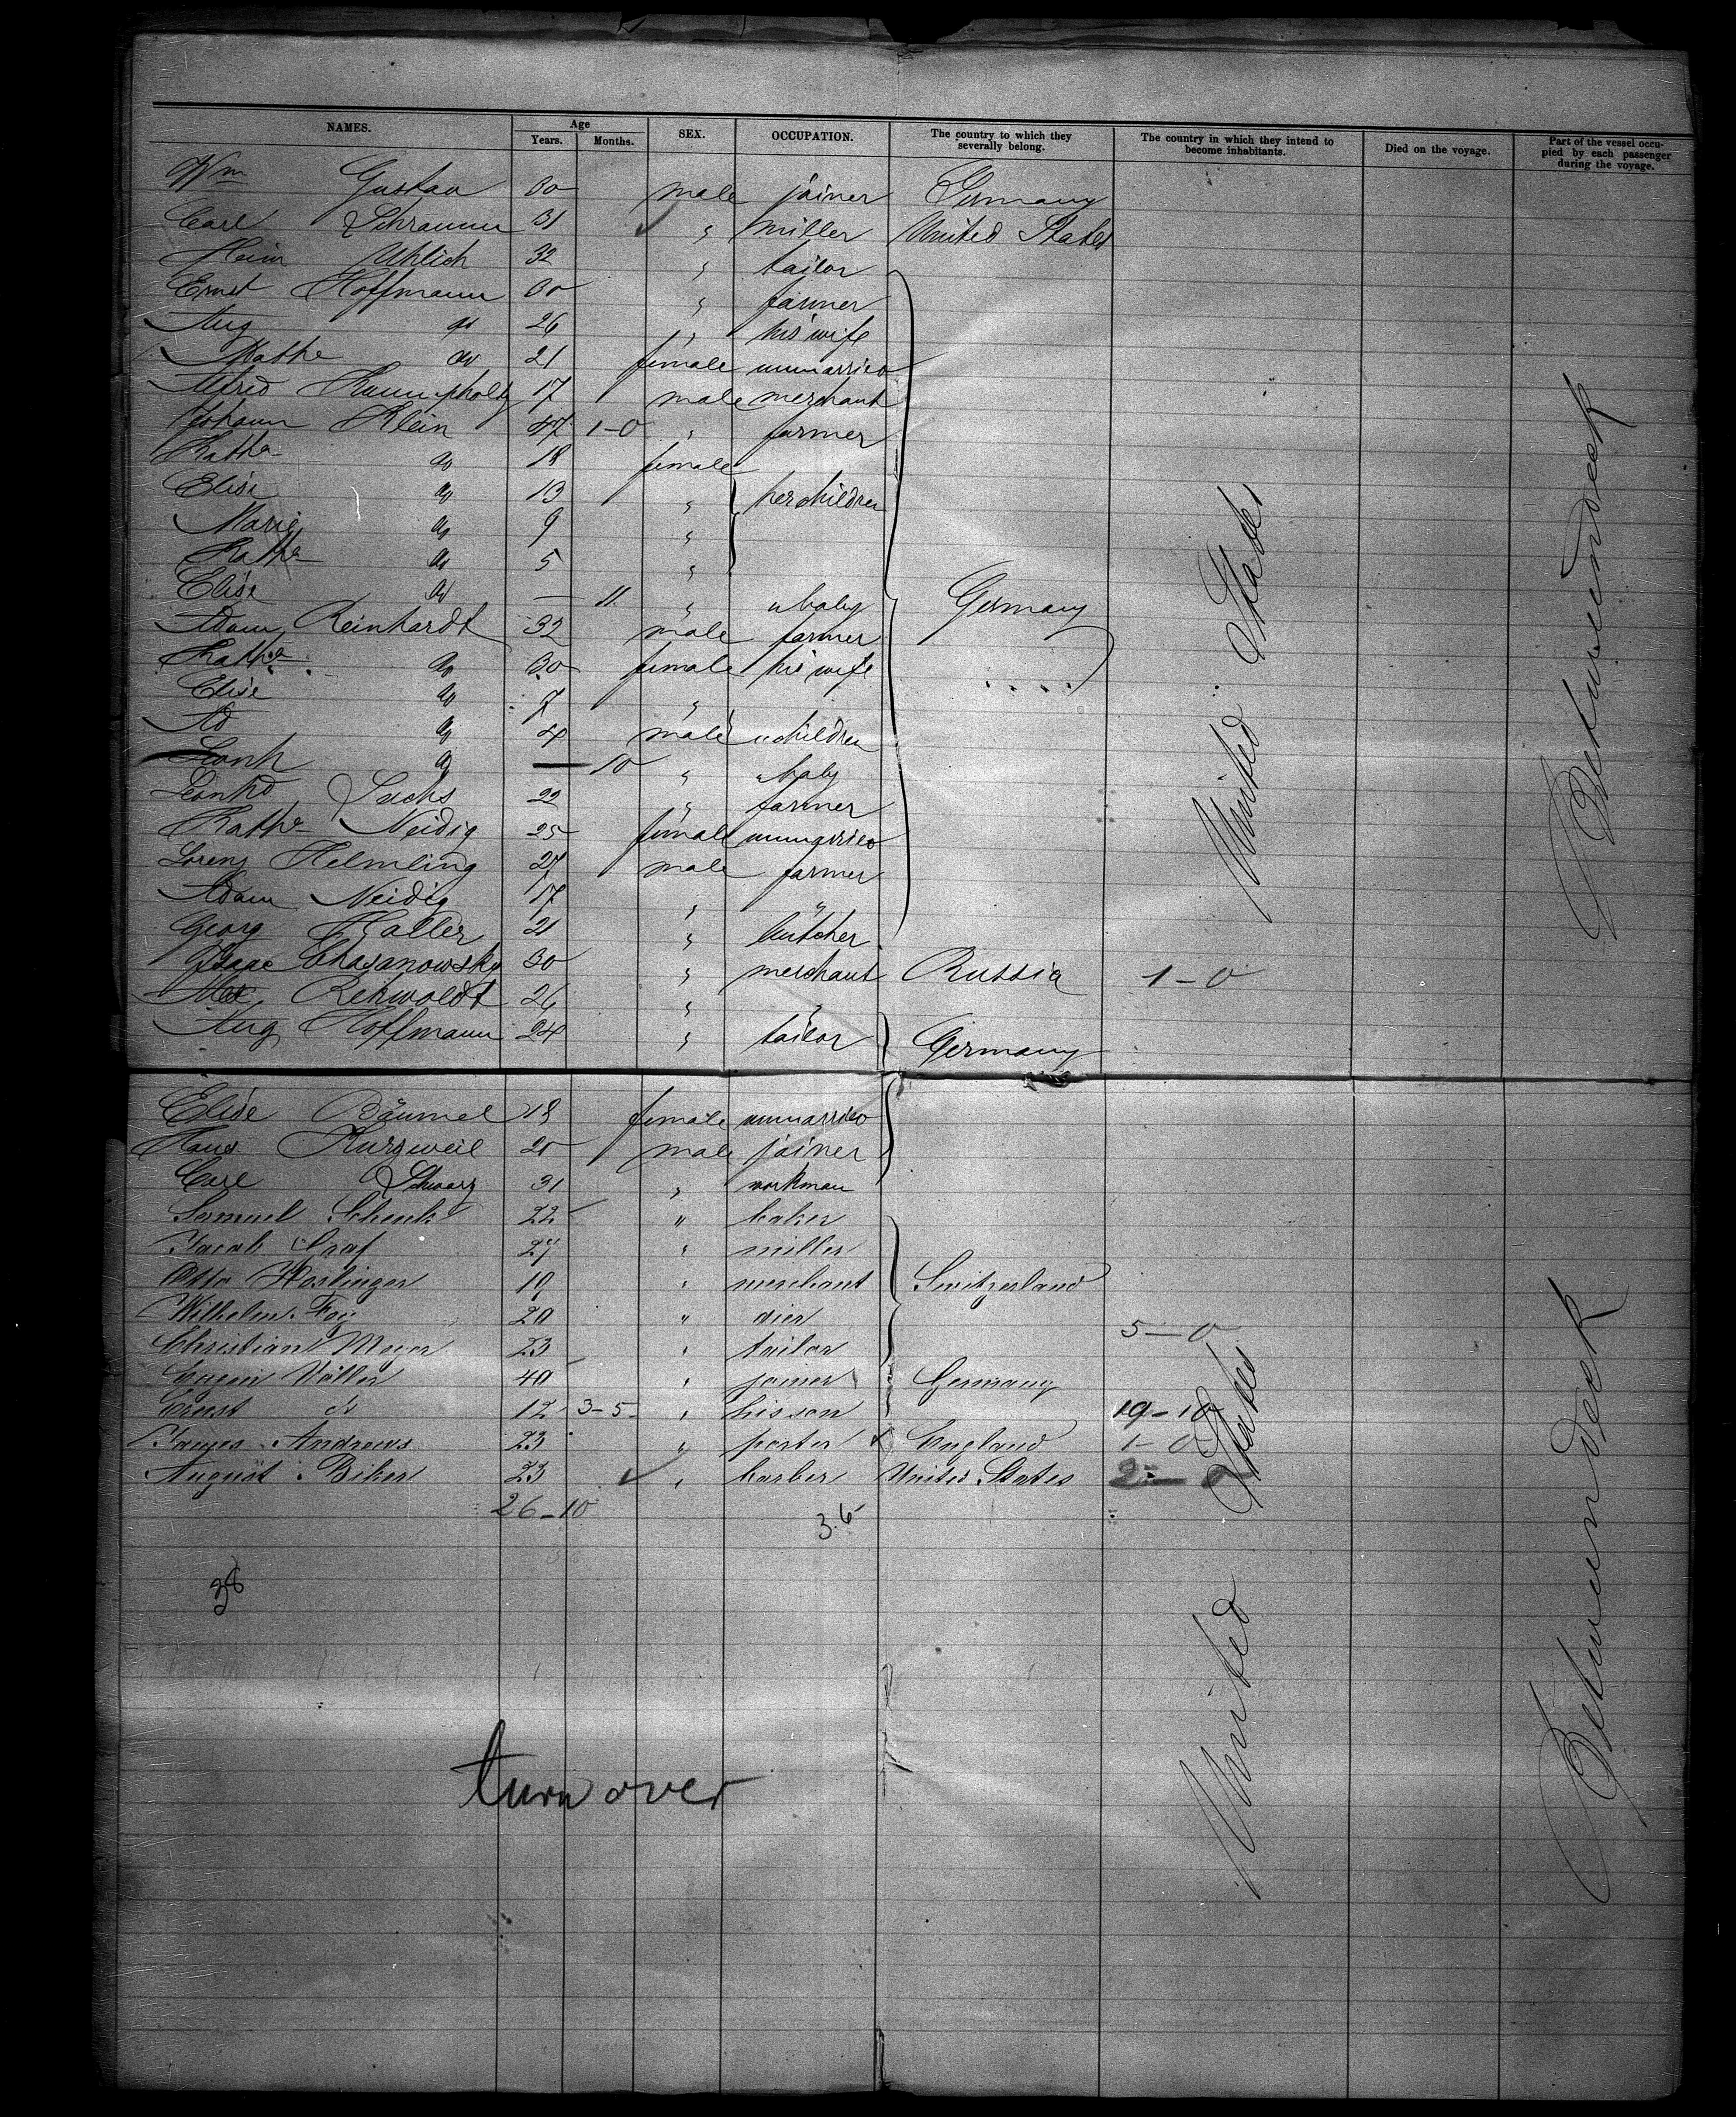 NAMES. Age Years. Months. SEX. OCCUPATION. The country to which they severally belong. The country in which they intend to become inhabitants. Died on the voyage. Part of the vessel occupied by each passenger during the voyage.
Wm Gustav 30 male joiner Germany
Carl Schramm 31 " miller United States
Heinr Uhlich 32 " tailor
Ernst Hoffmann 30 " farmer
Aug do 26 " his wife
Mathe do 21 female unmarried
Alfred 17 male merchant
Johann Klein 47 1-0 " farmer
Kathe do 18 female
Elise do 13 " her children
Marie do 9 "
Kathe do 5 "
Elise do — 11 " " baby Germany
Adam Reinhardt 32 male farmer
Kathe do 30 female his wife
Elise do 7 "
Ad do 4 male " children
Leonh do — 10 " " baby
Leonhd Sachs 22 " farmer
Kathe Neidig 25 female unmarried
Lorenz Helmling 27 male farmer
Adam Neidig 17 " "
Georg Haller 21 " butcher
Isaac Chasanowsky 30 " merchant Russia 1-0
Rehwoldt 26 " "
Aug Hoffmann 24 " tailor Germany
Elise Bäumel 18 female unmarried
Hans Kurzweil 20 male joiner
Carl Schwarz 31 " workman
Samuel Schenk 22 " baker
Jacob Graf 27 " miller
Otto Haslinger 19 " merchant Switzerland
Wilhelm Foy 20 " dier
5-0
Christian Meyer 23 " tailor
Eugen Müller 40 " joiner Germany
Ernst do 12 3-5 " his son 19-10
James Andrews 23 " porter x England 1-0
August Biker 23 " barber United States 2-0
26-10
3.5
38
turn over
United States
United States
Betweendeck
Betweendeck